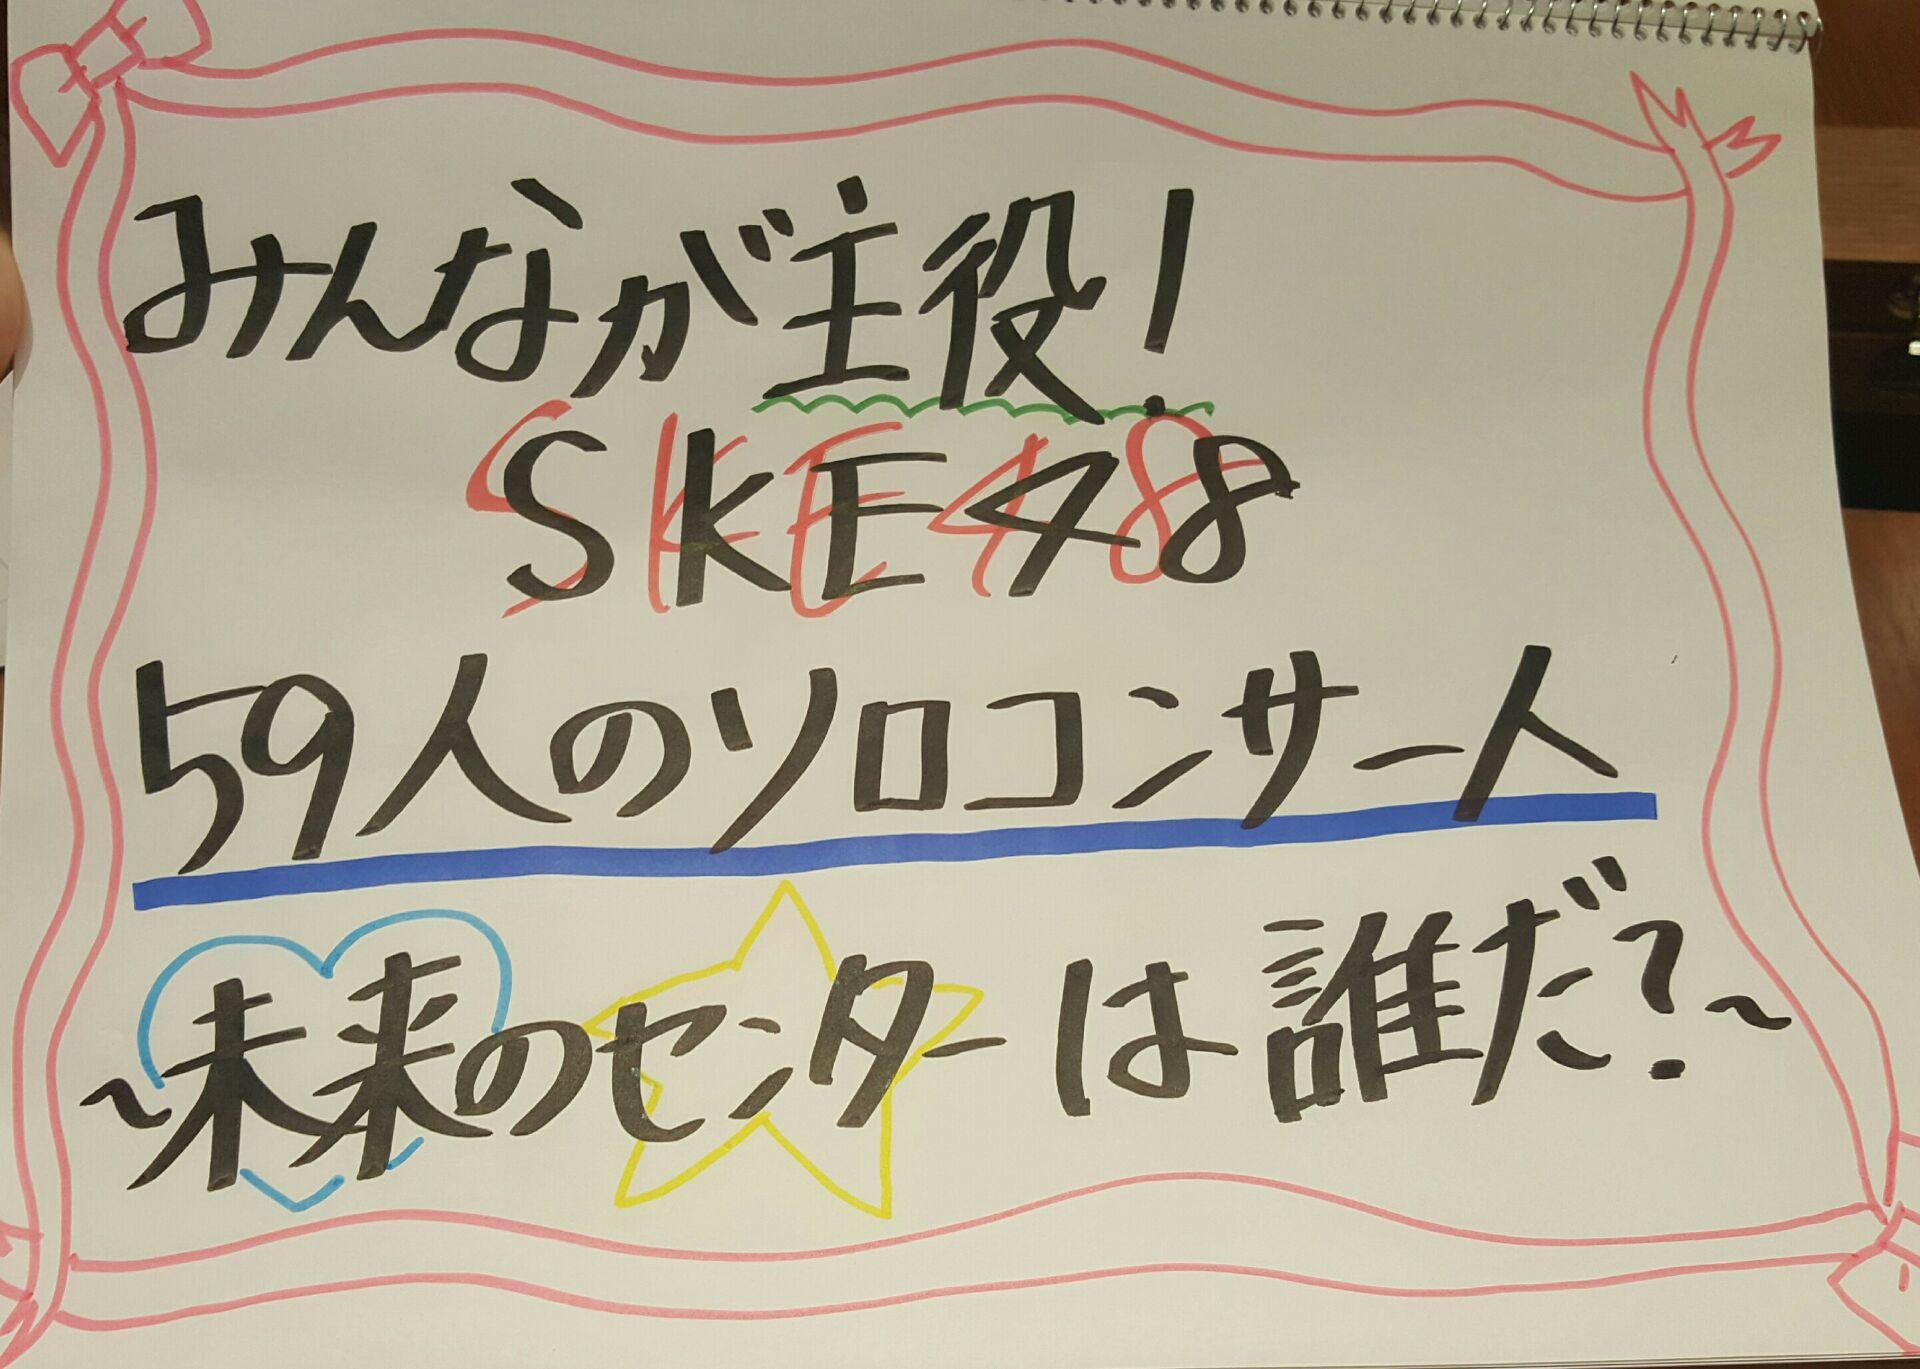 みんなが主役!
SKE48
59人のソロコンサート
~未来のセンターは誰だ?~